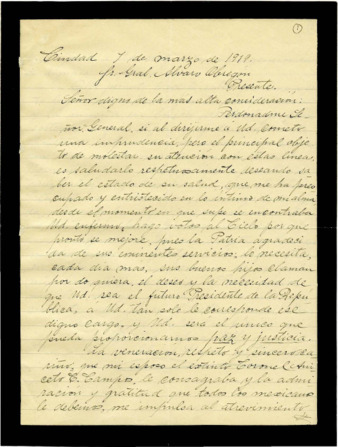 1
Ciudad 7 de marzo de 1919.
Sr. Gral. Alvaro Obregon
Presente.
Señor digno de la mas alta consideración:
Perdonadme Se
ñor General, si al dirigirme a Ud. cometo
una imprudencia, pero el principal obje
to de molestar su atencion con estas lineas,
es saludarlo respetuosamente deseando sa
ber el estado de su salud, que me ha preo
cupado y entristecido en lo intimo de mi alma
desde el momento en que supe se encontraba
Ud. enfermo, hago votos al Cielo por que
pronto se mejore, pues la Patria agradeci
da de sus eminentes servicios, lo necesita,
cada dia mas, sus buenos hijos claman
por do quiera, el deseo y la necesidad de
que Ud. sea el futuro Presidente de la Repú
blica, a Ud. tan solo le corresponde ese
digno cargo, y Ud. sera el unico que
pueda proporcionarnos paz y justicia.
La veneracion, respeto y sincero ca
riño, que mi esposo el extinto Coronel Ani
ceto C. Campos, le consagraba y la admi
racion y gratitud que todos los mexicanos
le debemos, me impulsa al atrevimiento